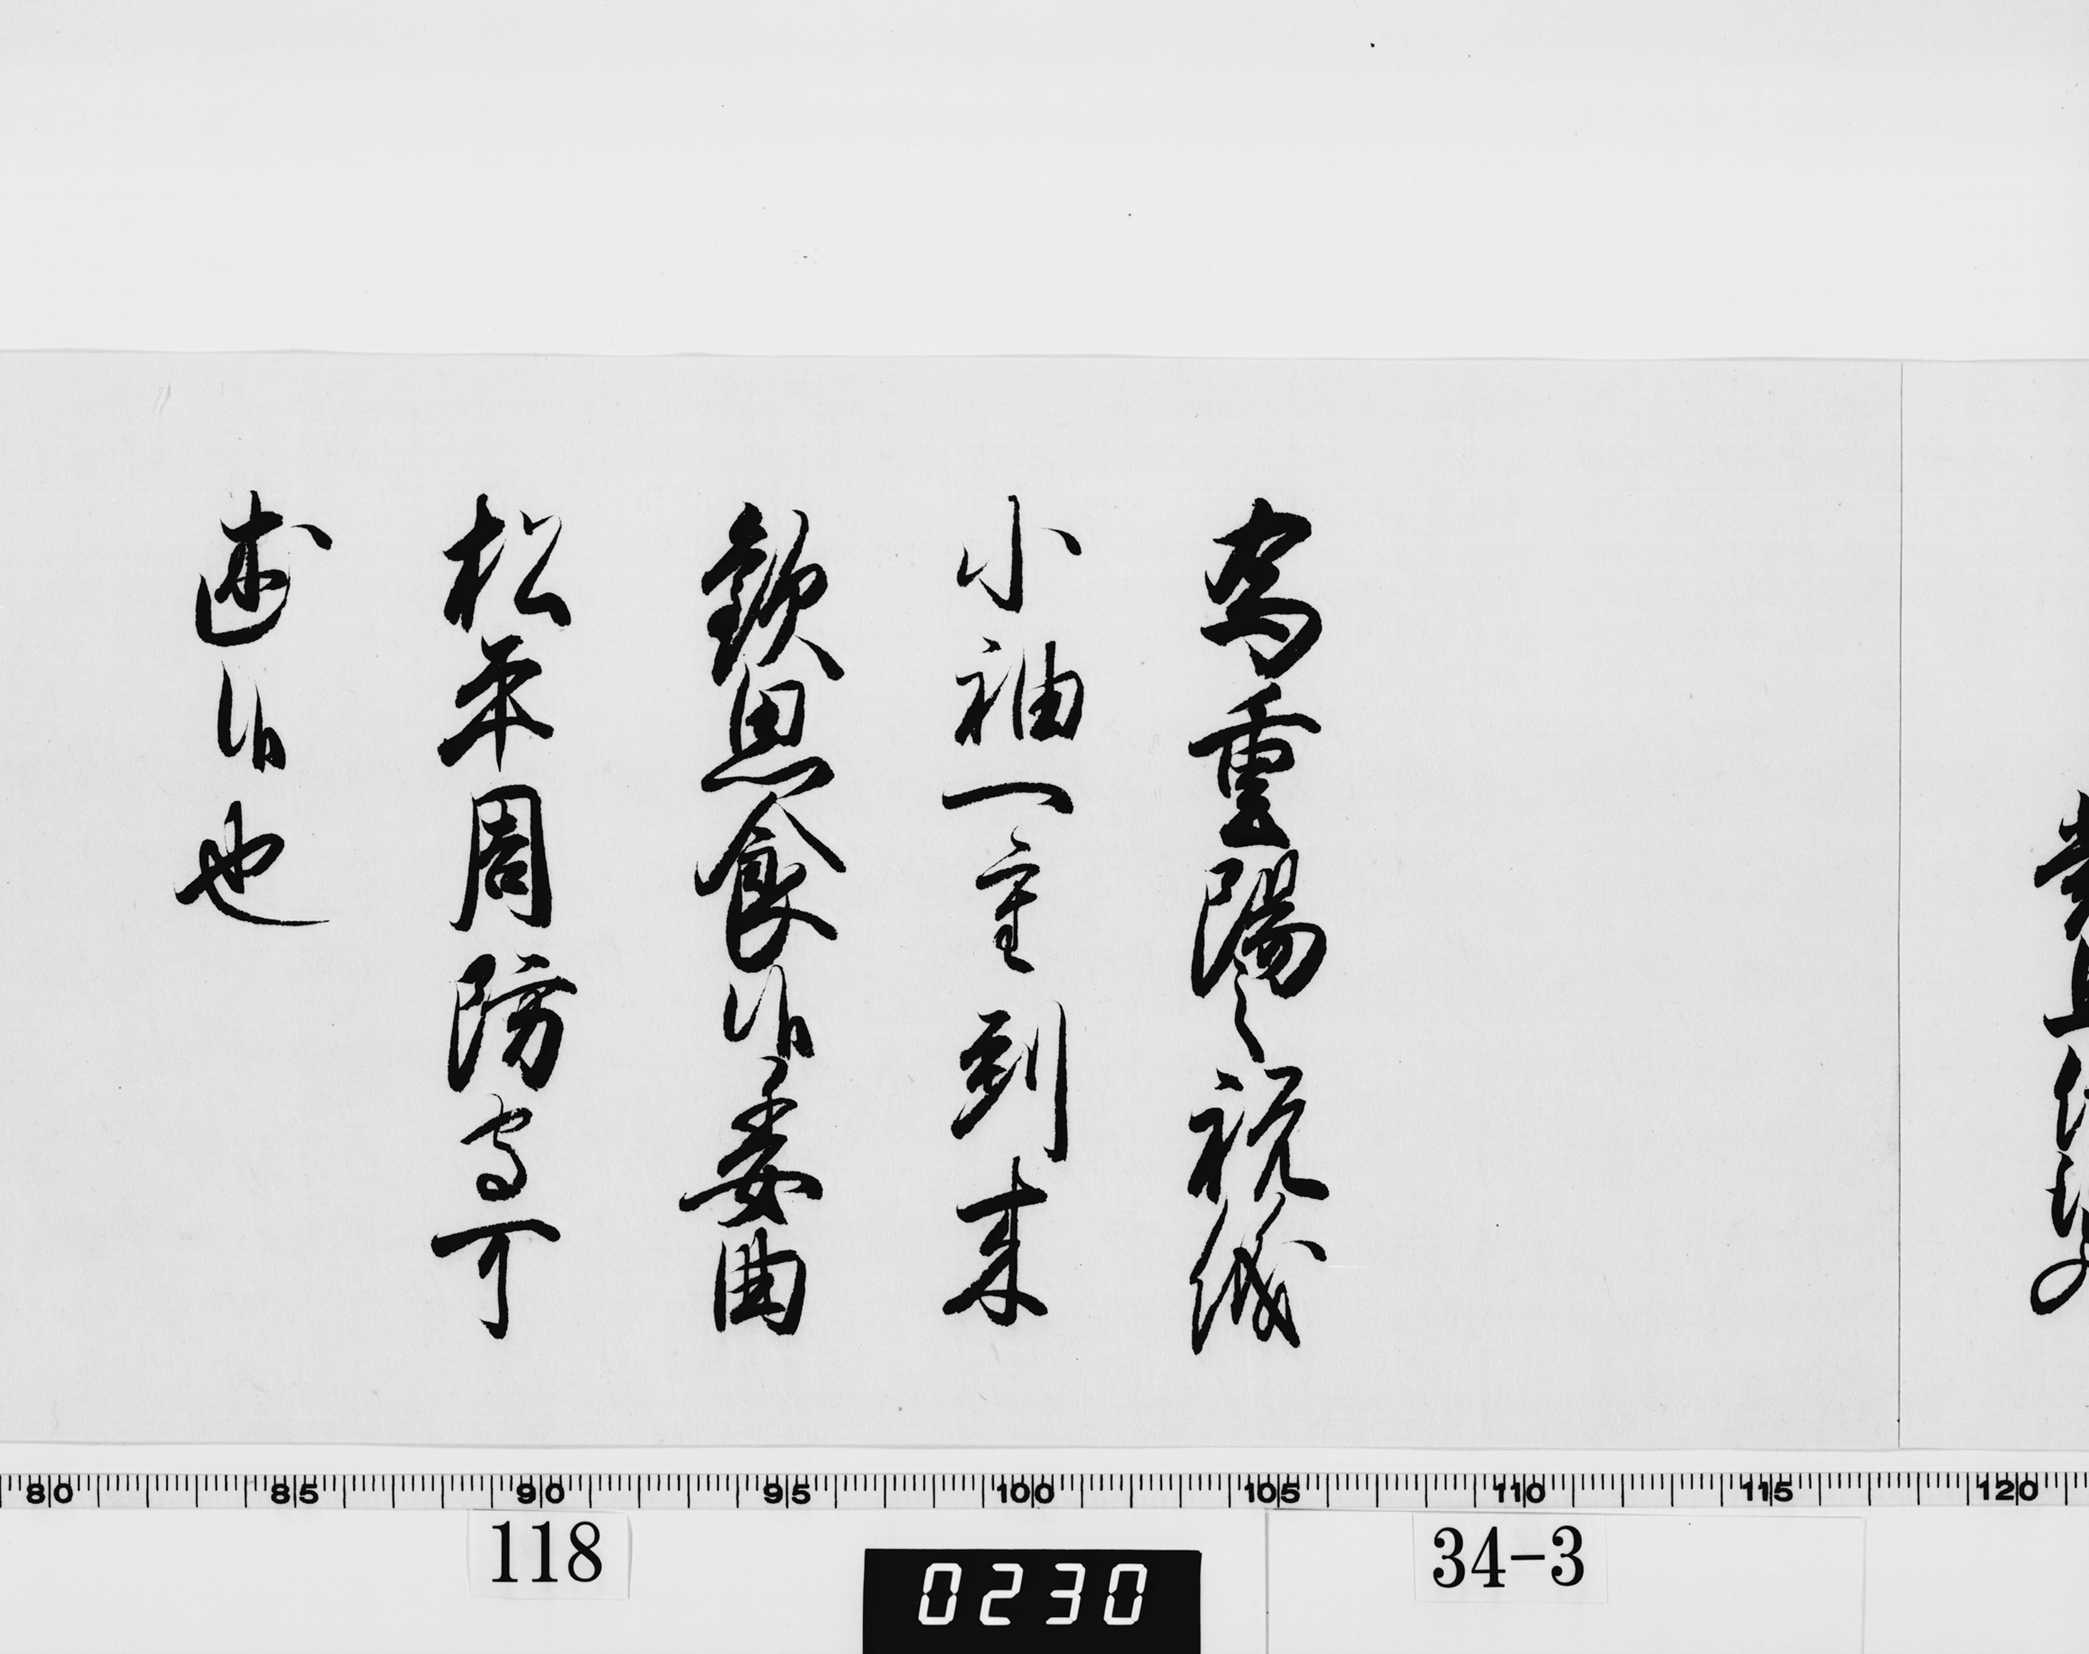 為重陽之祝儀
小袖一重到来
歓思食候委曲
松平周防守可
述候也
80 85 90 95 100 105 110 115 120
118
0230
34-3